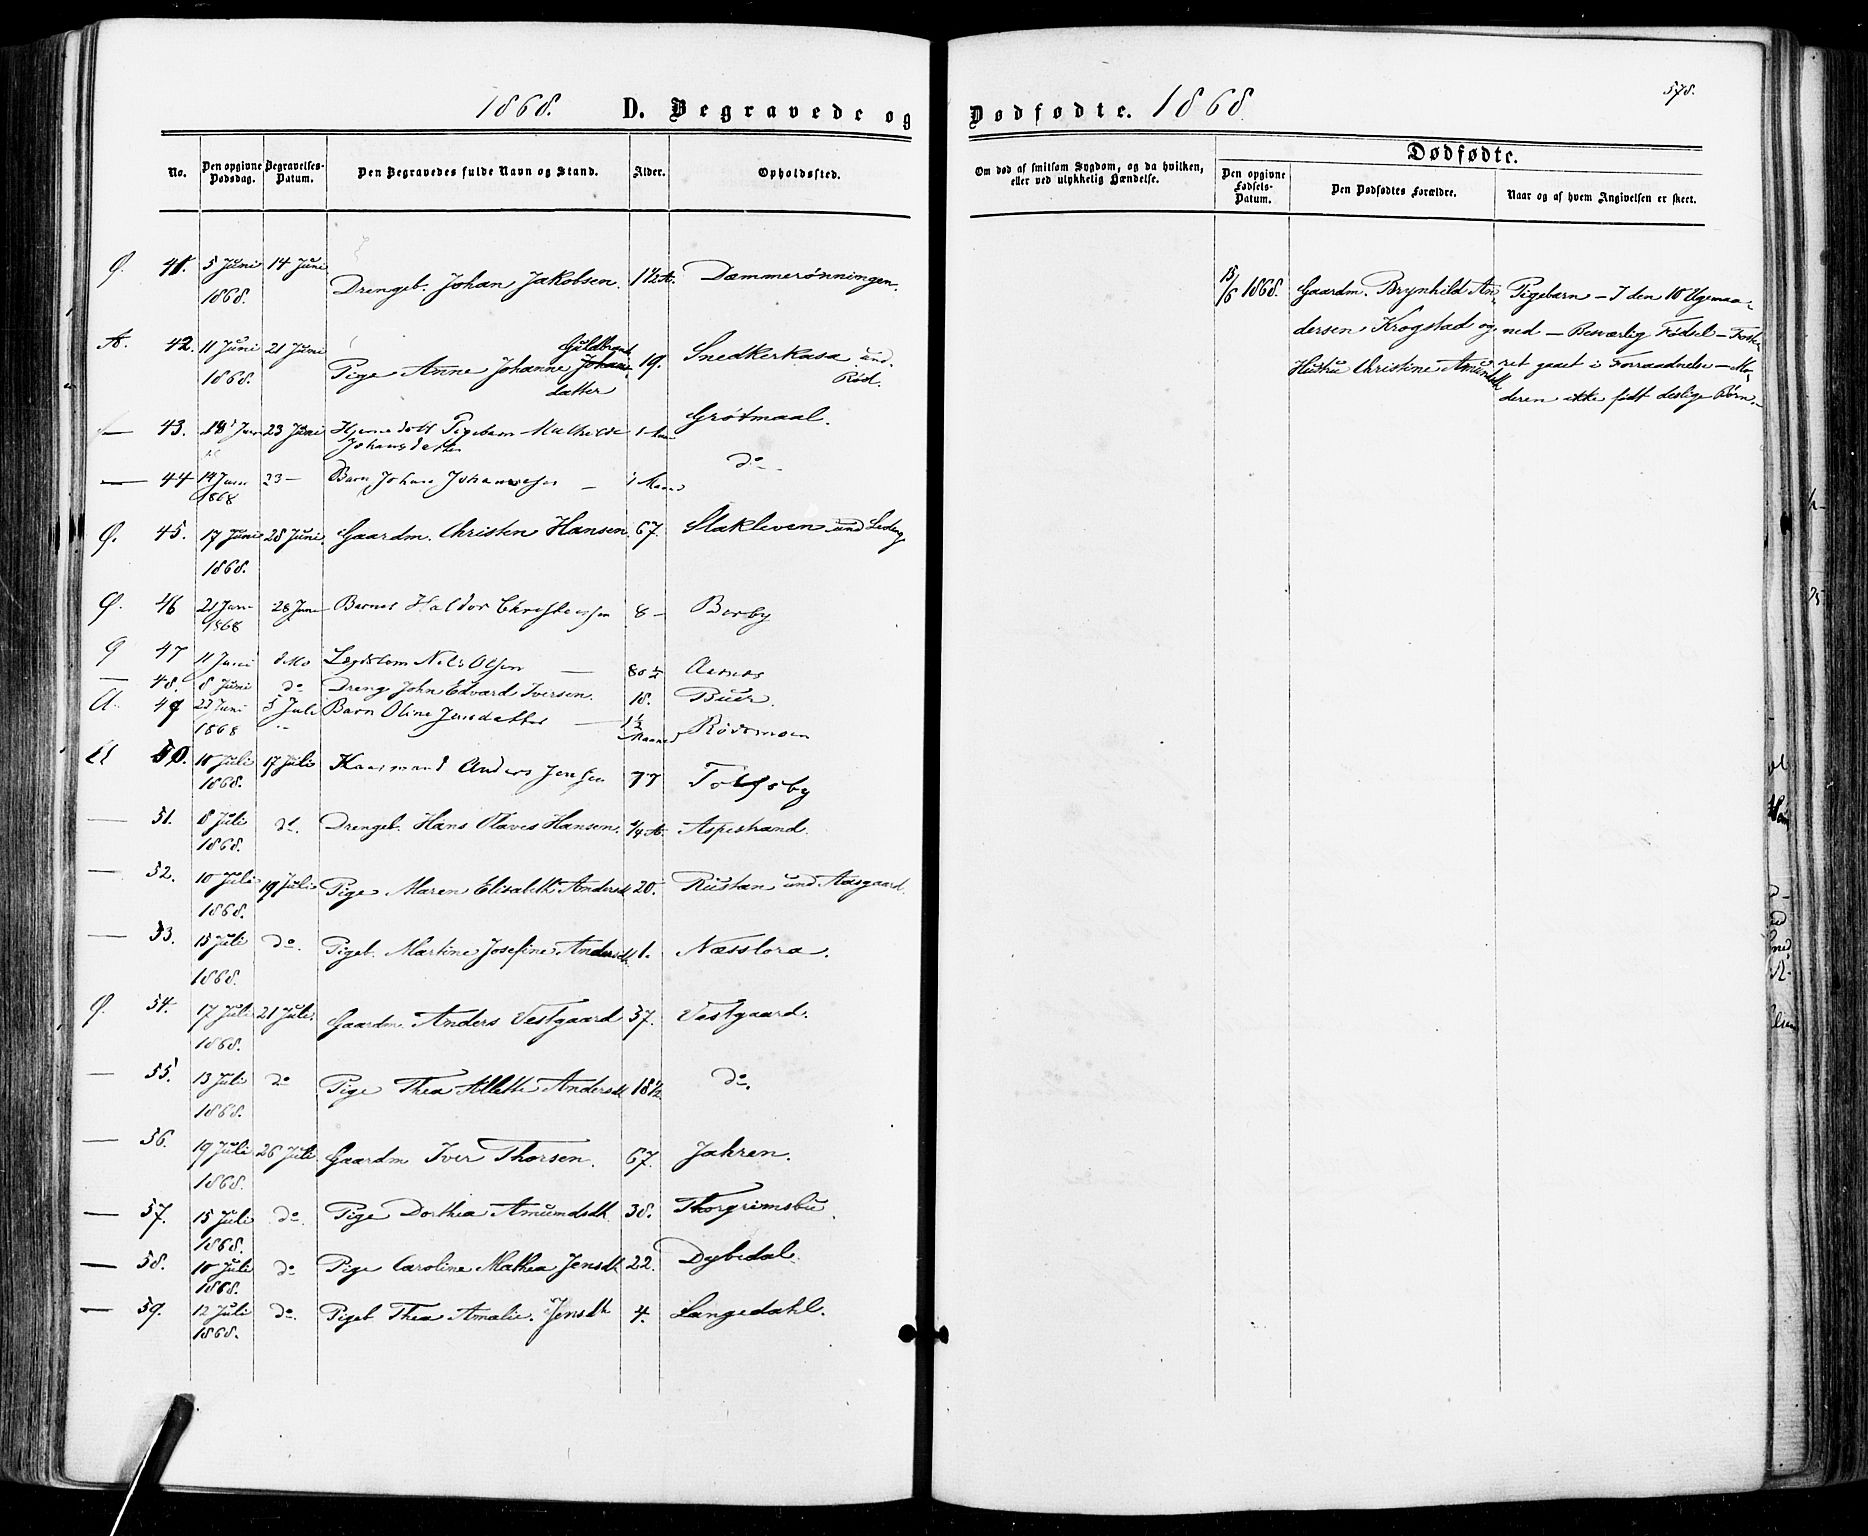 1868. D. Begravede og
Dødfødte. 1868
578.
No. Den opgivne Dødsdag. Begravelses-Datum. Den Begravedes fulde Navn og Stand. Alder. Opholdssted.
Om død af smitsom Sygdom, og da hvilken, eller ved ulykkelig Hændelse.
Dødfødte.
Den opgivne Fødsels-Datum. Den Dødfødtes Forældre. Naar og af hvem Angivelsen er skeet.
Ø. 41. 5 Juni 1868. 14 Juni Drengeb. Johan Jakobsen. 1 1/2 A. Dammerønningen.
A. 42. 11 Juni 1868. 21 Juni Pige Anne Johanne Guldbrands datter 19. Snedkerkasa und. Rød.
— 43. 18 Juni 23 Juni Hjemmedøbt Pigebarn Mathilde Johansdatter 1 Grøtmaal.
— 44 14 Juni 1868 23 — Barn Johan Johannesen — 1 Maaned do
Ø. 45. 17 Juni 1868. 28 Juni. Gaardm. Christen Hansen. 67. Stakleven und
Ø. 46 21 Juni 1868 28 Juni Barnet Haldor Christensen 8 — Berby
Ø 47 11 Juni Lægdslem Nils Olsen — 80 1/2 Aarnes
— 48. 8 Juni do Dreng John Edvard Iversen. 18. Buer.
A. 49 23 Juni 1868 5 Juli Barn Oline Jensdatter — 1 1/2 Maaned Rødsmoen
A 50. 10 Juli 1868. 17 Juli Kaarmand Anders Jensen 77 Tolfsby
— 51. 8 Juli 1868. do. Drengeb. Hans Olaves Hansen. 1/4 A. Aspestrand.
— 52. 10 Juli 1868. 19 Juli Pige Maren Elisabeth Andersdt 20. Rustan und Aasgaard.
— 53. 15 Juli 1868. do. Pigeb. Martine Josefine Andersdt. 1. Næsstora.
Ø. 54. 17 Juli 1868. 21 Juli. Gaardm. Anders Vestgaard 57. Vestgaard.
— 55. 13 Juli 1868. do Pige Thea Allette Andersdt 18 1/2 do.
— 56. 19 Juli 1868. 26 Juli Gaardm Iver Thorsen. 67. Jahren.
— 57. 15 Juli 1868. do. Pige Dorthea Amundsdt. 38. Thorgrimsbu.
— 58. 10 Juli 1868. do Pige Caroline Mathea Jensdt 22. Dybedal.
— 59. 12 Juli 1868. do. Pigeb. Thea Amalie. Jensdt 4. Langedahl.
15/6 1868. Gaardm. Brynhild An-
dersen Krogstad og
Hustru Christine Amundsdt
Pigebarn — I den 10 Ugemaa-
ned — Besværlig Fødsel — Foste-
ret gaaet i Forraadnelse — Mo-
deren ikke født deslige Børn.